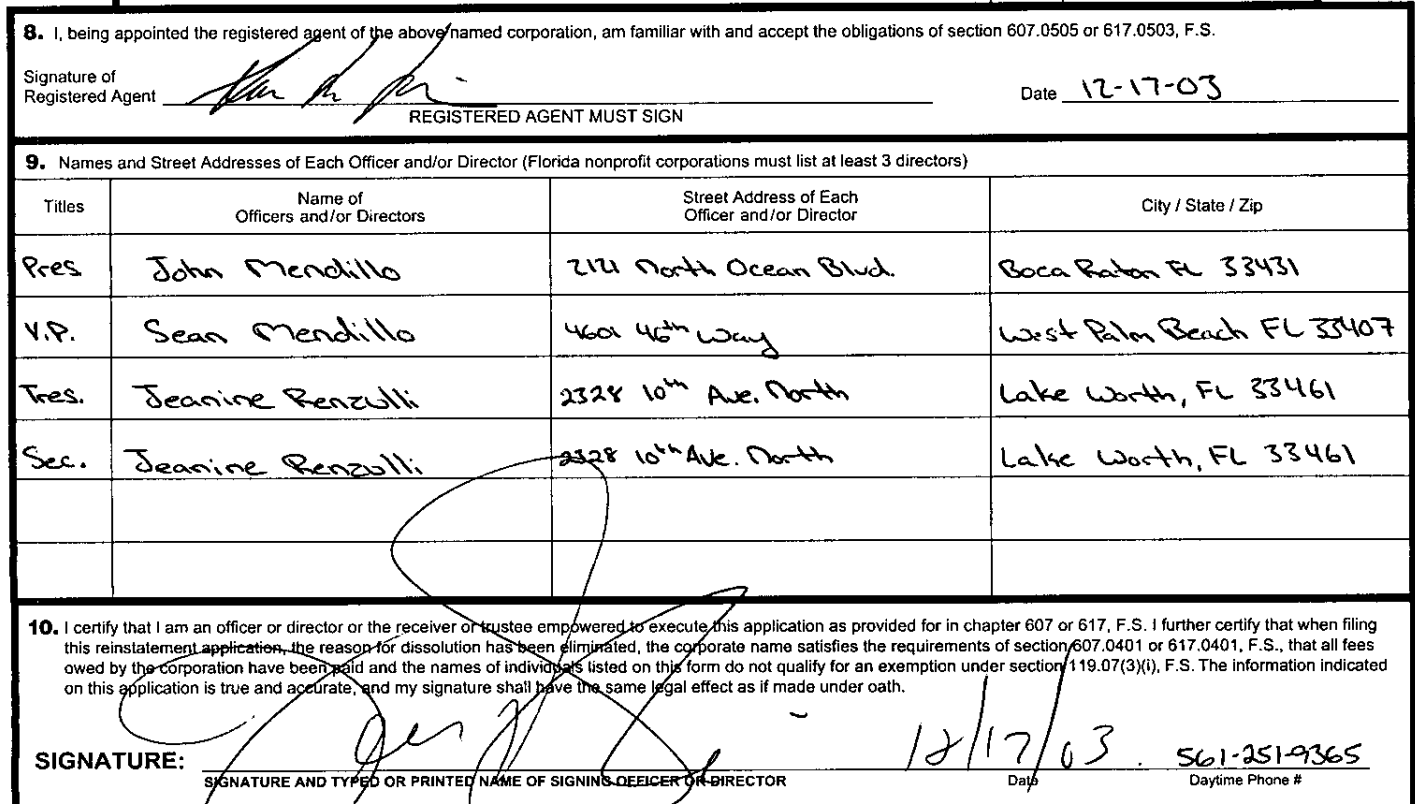 8. I, being appointed the registered agent of the above named corporation, am familiar with and accept the obligations of section 607.0505 or 617.0503, F.S.
Signature of
Registered Agent
Date 12-17-03
REGISTERED AGENT MUST SIGN
9. Names and Street Addresses of Each Officer and/or Director (Florida nonprofit corporations must list at least 3 directors)
Titles Name of Officers and/or Directors Street Address of Each Officer and/or Director City / State / Zip
Pres John Mendillo 2121 North Ocean Blvd. Boca Raton FL 33431
V.P. Sean Mendillo 4601 46th Way West Palm Beach FL 33407
Tres. Jeanine Renzulli 2328 10th Ave. North Lake Worth, FL 33461
Sec. Jeanine Renzulli 2328 10th Ave. North Lake Worth, FL 33461
10. I certify that I am an officer or director or the receiver or trustee empowered to execute this application as provided for in chapter 607 or 617, F.S. I further certify that when filing
this reinstatement application, the reason for dissolution has been eliminated, the corporate name satisfies the requirements of section 607.0401 or 617.0401, F.S., that all fees
owed by the corporation have been paid and the names of individuals listed on this form do not qualify for an exemption under section 119.07(3)(i), F.S. The information indicated
on this application is true and accurate, and my signature shall have the same legal effect as if made under oath.
SIGNATURE: 12/17/03 561-251-9365
SIGNATURE AND TYPED OR PRINTED NAME OF SIGNING OFFICER OR DIRECTOR Date Daytime Phone #